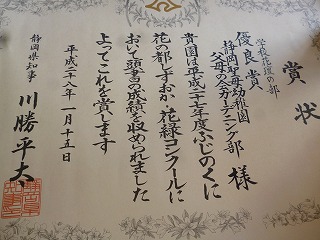 賞状
学校花壇の部
優良賞
静岡聖母幼稚園
父母の会ガーデニング部 様
貴園は平成二十七年度ふじのくに
花の都しずおか・花緑コンクールに
おいて頭書の成績を収められました
よってこれを賞します
平成二十八年一月十五日
静岡県知事 川勝平太